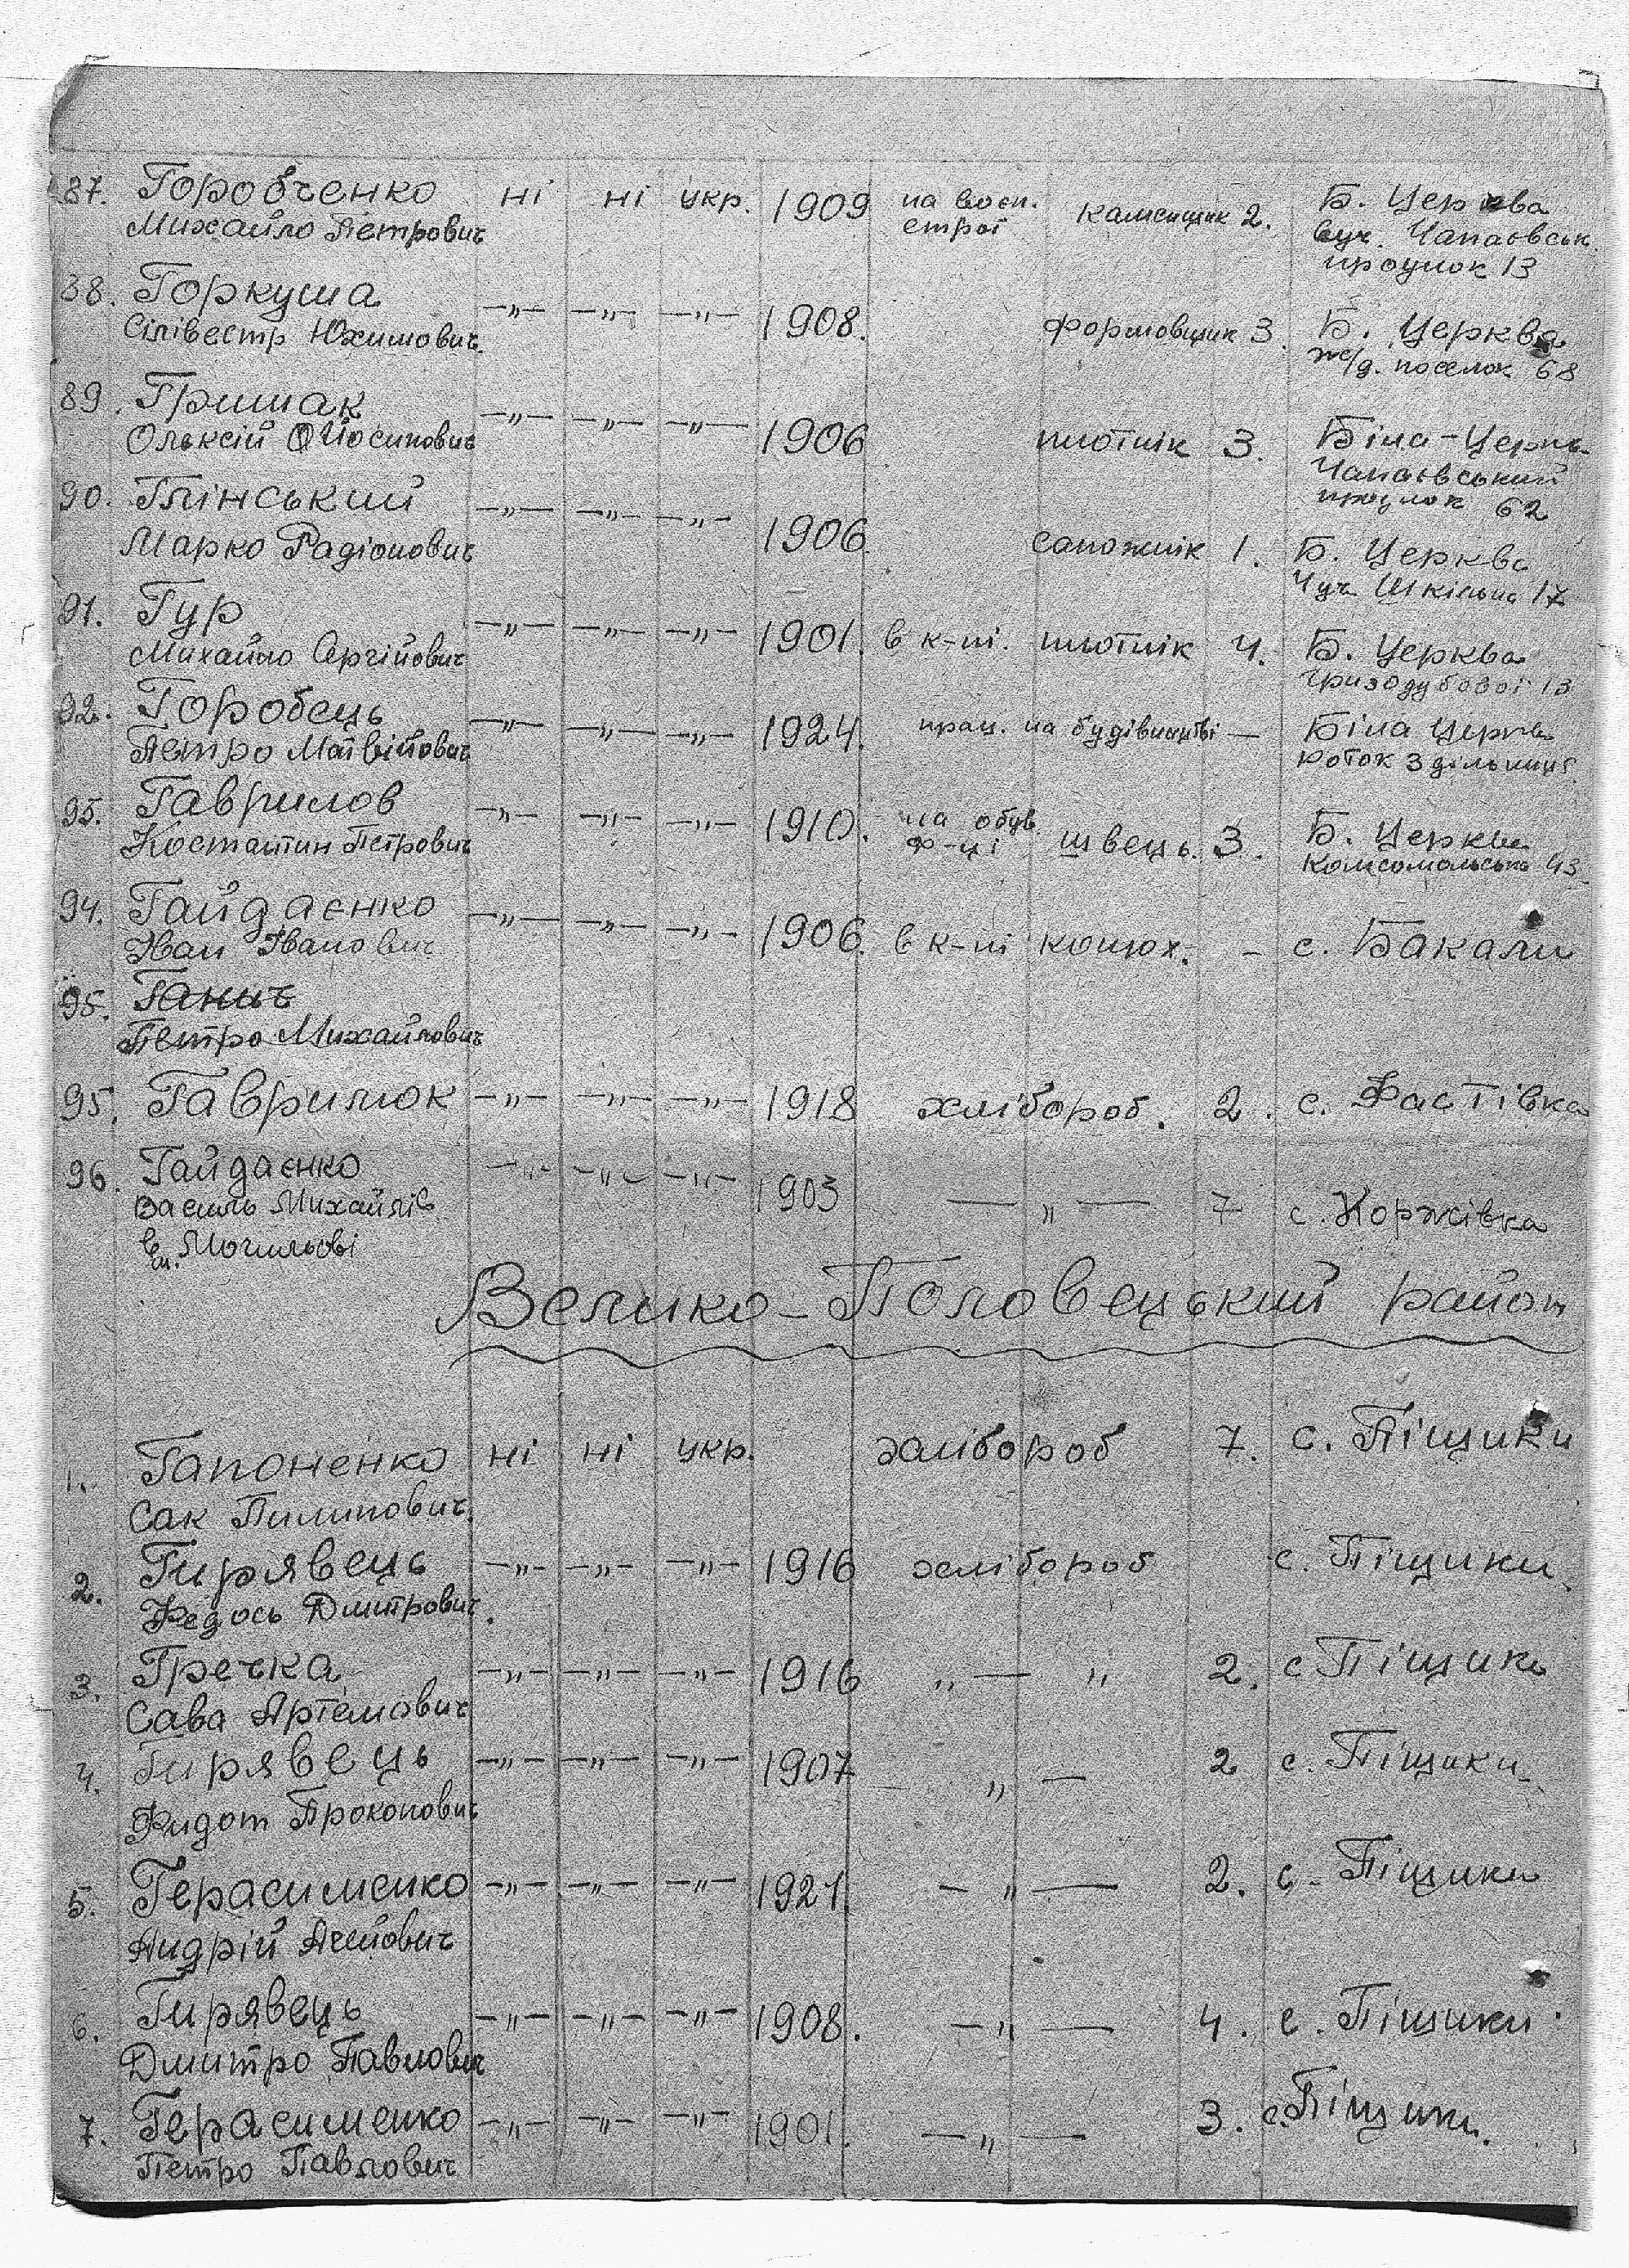 87. Горобченко ні ні укр. 1909 на воєн. каменщик 2. Б. Церква
Михайло Петрович строї вул. Чапаєвськ.
проулок 13
88. Горкуша —„— —„— —„— 1908. формовщик 3. Б. Церква
Сілівестр Юхимович. ж/д. поселок 68
89. Гришак —„— —„— —„— 1906 плотнік 3. Біла-Церква
Ольксій Йосипович Чапаєвський
проулок 62
90. Глінський —„— —„— —„— 1906. сапожнік 1. Б. Церква
Марко Радіонович Шкільна 17
91. Гур —„— —„— —„— 1901. в к-пі. плотнік 4. Б. Церква
Михайло Сергійович Гризодубової 13
92. Горобець —„— —„— —„— 1924. прац. на будівництві — Біла Церква
Петро Матвійович Роток 3 дільниця
93. Гаврилов —„— —„— —„— 1910. на обув. швець. 3. Б. Церква
Костантин Петрович ф-ці Комсомольська 43
94. Гайдаєнко —„— —„— —„— 1906. в к-пі конюх. - с. Бакали
Іван Іванович
95. Ганич
Петро Михайлович
95. Гаврилюк —„— —„— —„— 1918 хлібороб. 2. с. Фастівка
96. Гайдаєнко —„— —„— —„— 1903 — „ — 7 с. Коржівка
Василь Михайлів
в м. Могильові
Велико-Половецький район
1. Гапоненко ні ні укр. хлібороб 7. с. Піщики
Сак Пилипович.
2. Гирявець —„— —„— —„— 1916 хлібороб с. Піщики.
Федось Дмитрович.
3. Гречка —„— —„— —„— 1916 „ — „ 2. с Піщики
Сава Артемович
4. Гирявець —„— —„— —„— 1907 „ — 2 с. Піщики
Фидот Прокопович
5. Герасименко —„— —„— —„— 1921. — „ — 2. с. Піщики
Андрій
6. Гирявець —„— —„— —„— 1908. — „ — 4. с. Піщики
Дмитро Павлович
7. Герасименко —„— —„— —„— 1901. — „ — 3. с. Піщики.
Петро Павлович